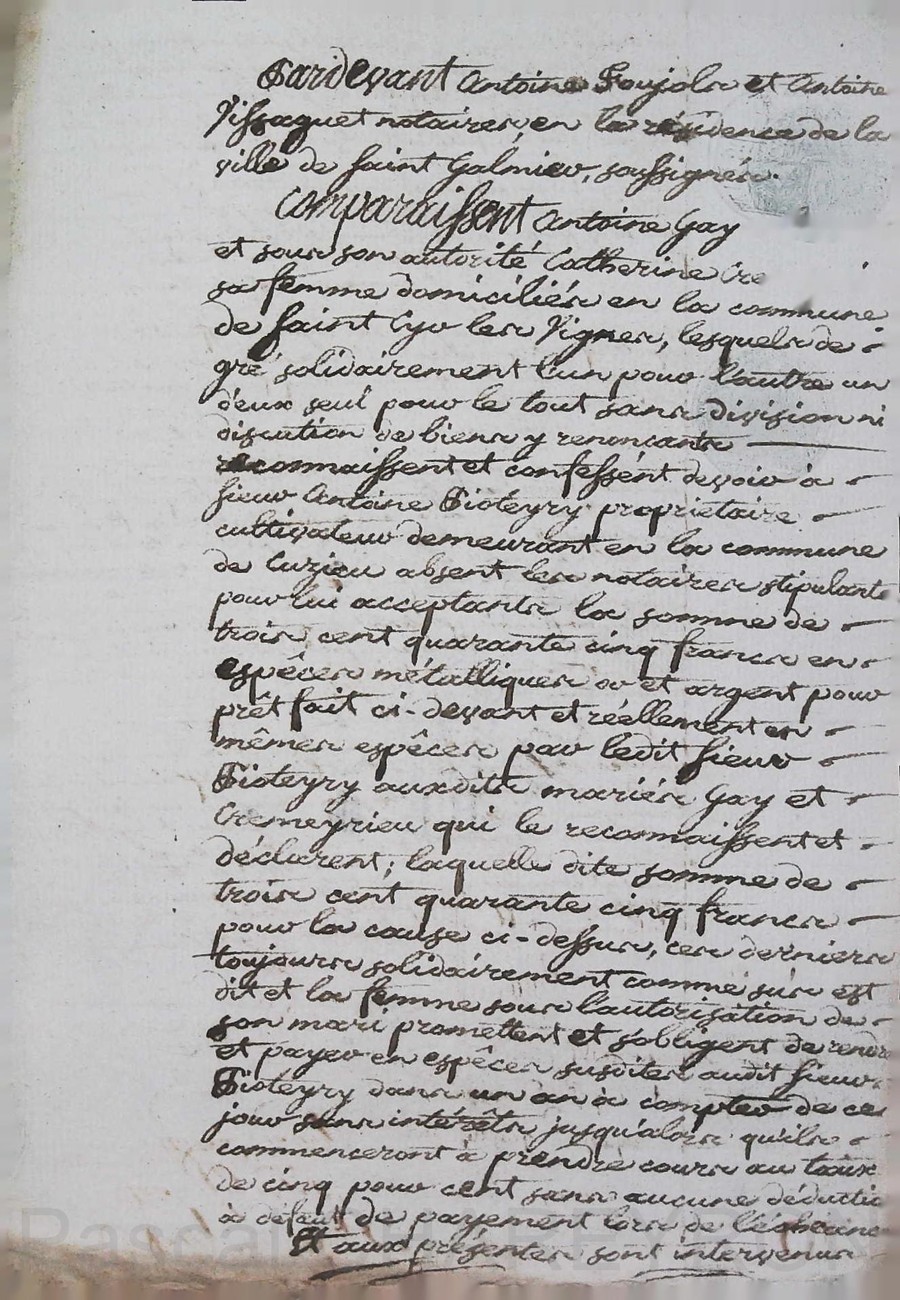 Pardevant Antoine Poujols et Antoine
Vissaguet notaires, en la résidence de la
ville de Saint Galmier, soussignés.
Comparaissent Antoine Gay
et sous son autorité Catherine Cre
sa femme domiciliés en la commune
de Saint Cyr les Vignes, lesquels de
gré solidairement l'un pour l'autre un
d'eux seul pour le tout sans division ni
discution de biens y renoncants
reconnaissent et confessent devoir à
sieur Antoine Pioteyry propriétaire
cultivateur demeurant en la commune
de Cuzieu absent les notaires stipulants
pour lui acceptants la somme de
trois cent quarante cinq francs en
espêces métalliques or et argent pour
prêt fait ci-devant et réellement en
mêmes espêces par ledit sieur
Pioteyry auxdits mariés Gay et
Cremeyrieu qui le reconnaissent et
déclarent; laquelle dite somme de
trois cent quarante cinq francs
pour la cause ci-dessus, ces derniers
toujours solidairement comme sus est
dit et la femme sous l'autorisation de
son mari promettent et s'obligent de rendre
et payer en espéces susdites audit sieur
Pioteyry dans un an à compter de ce
jour sans intérêts jusqu'alors qu'ils
commenceront à prendre cours au taux
de cinq pour cent sans aucune déductio
à défaut de payement lors de l'échéance
Et aux présentes sont intervenus